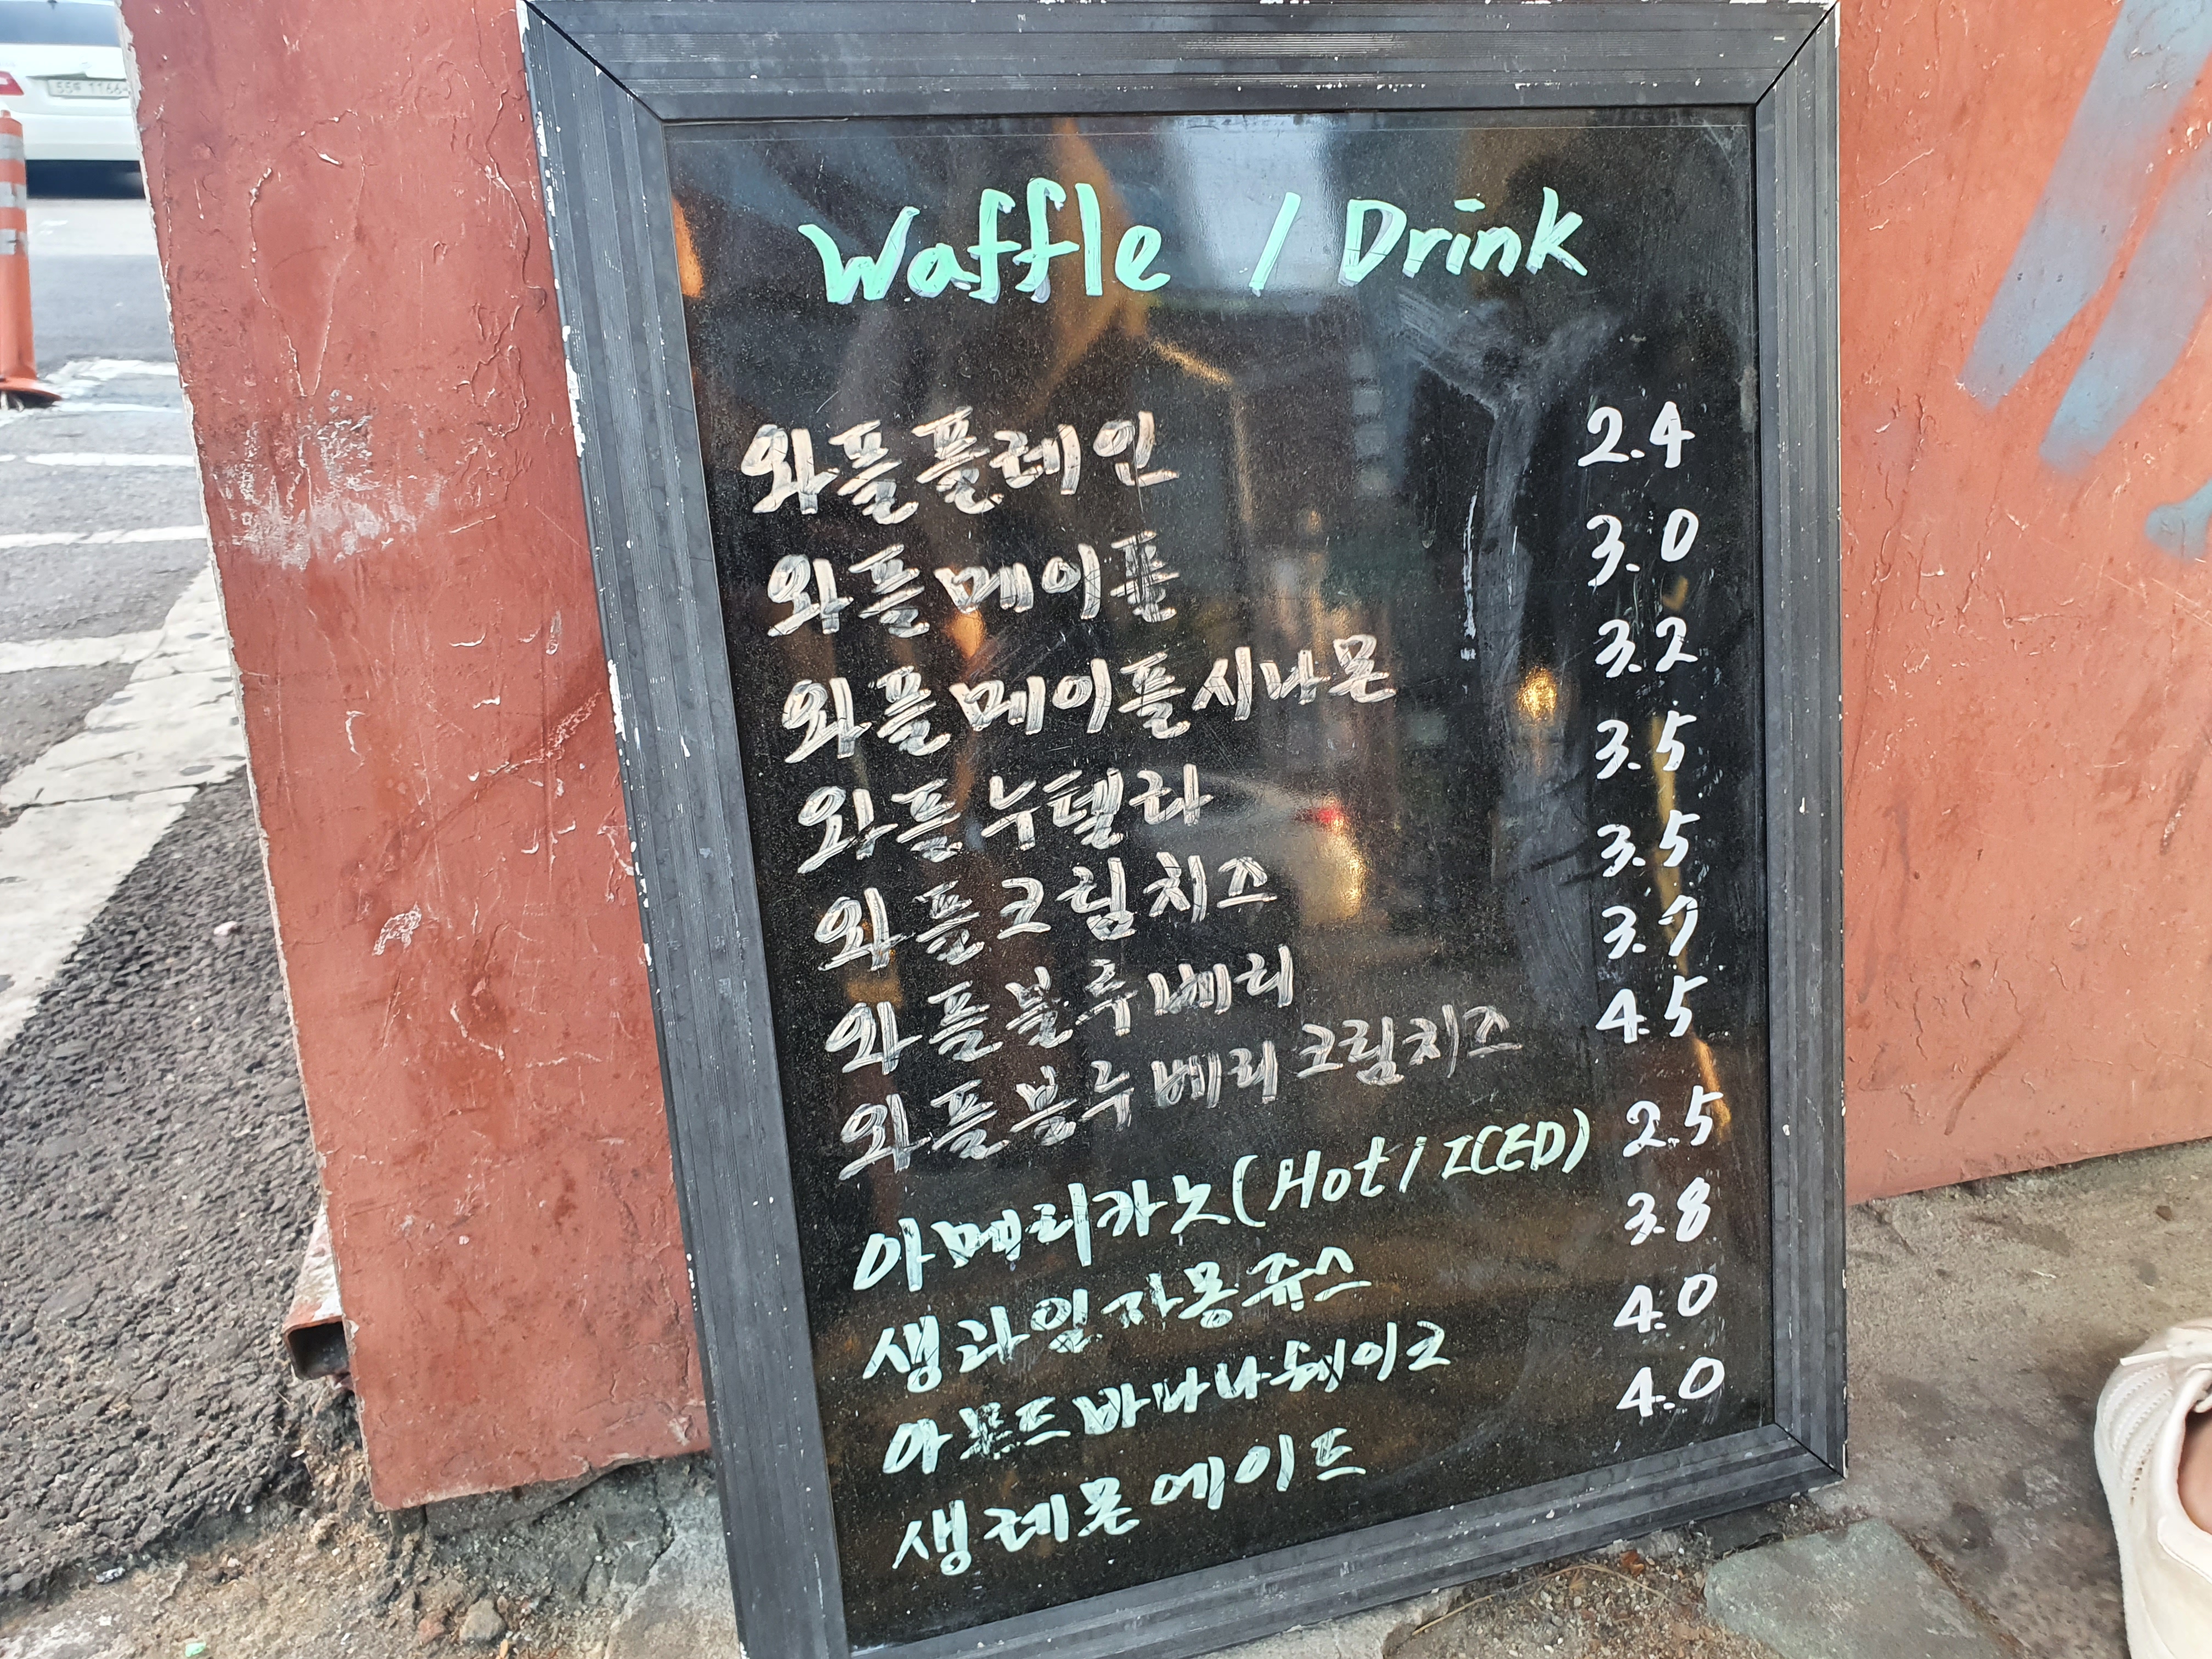 Waffle / Drink
와플플레인 2.4
와플메이플 3.0
와플메이플시나몬 3.2
와플누텔라 3.5
와플크림치즈 3.5
와플블루베리 3.7
와플블루베리크림치즈 4.5
아메리카노(Hot/ICED) 2.5
생라임자몽쥬스 3.8
아몬드바나나쉐이크 4.0
생레몬에이드 4.0